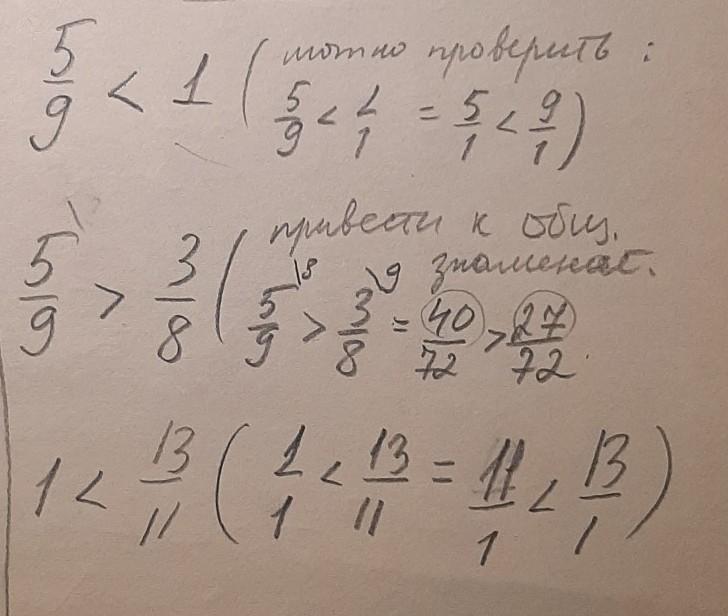 5/9 < 1 (можно проверить :
5/9 < 1/1 = 5/1 < 9/1)
5/9 > 3/8 (привести к общ.
знаменат.
5/9 \8 > 3/8 \9 = 40/72 > 27/72.
1 < 13/11 (1/1 < 13/11 = 11/1 < 13/1)